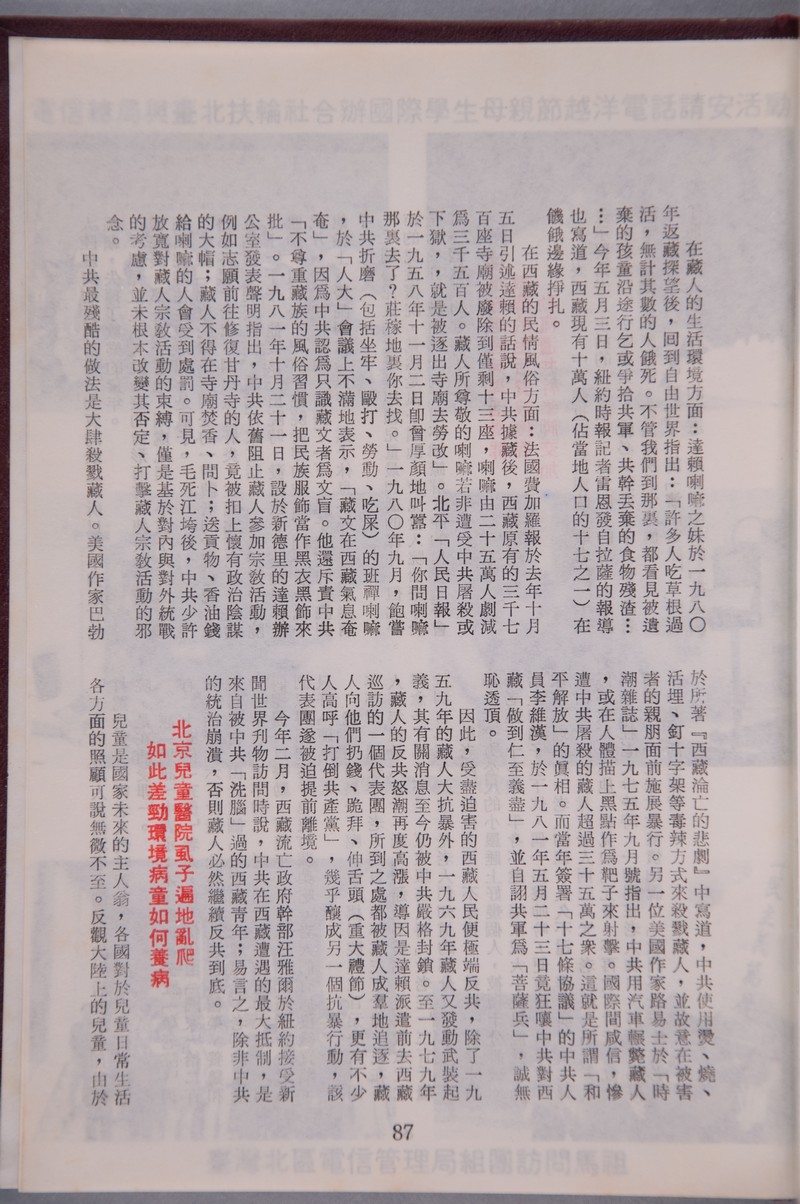 在藏人的生活環境方面：達賴喇嘛之妹於一九八〇
年返藏探望後，回到自由世界指出：「許多人吃草根過
活，無計其數的人餓死。不管我們到那裏，都看見被遺
棄的孩童沿途行乞或爭拾共軍、共幹丟棄的食物殘渣…
…」今年五月三日，紐約時報記者雷恩發自拉薩的報導
也寫道，西藏現有十萬人（佔當地人口的十七之一）在
饑餓邊緣掙扎。
在西藏的民情風俗方面：法國費加羅報於去年十月
五日引述達賴的話說，中共據藏後，西藏原有的三千七
百座寺廟被廢除到僅剩十三座，喇嘛由二十五萬人劇減
爲三千五百人。藏人所尊敬的喇嘛若非遭受中共屠殺或
下獄，，就是被逐出寺廟去勞改」。北平「人民日報」
於一九五八年十一月二日卽曾厚顏地叫嚣：「你問喇嘛
那裏去了？莊稼地裏你去找。」一九八〇年九月，飽嘗
中共折磨（包括坐牢、毆打、勞動、吃屎）的班禪喇嘛
，於「人大」會議上不滿地表示，「藏文在西藏氣息奄
奄」，因爲中共認爲只識藏文者爲文盲。他還斥責中共
「不尊重藏族的風俗習慣，把民族服飾當作黑衣黑飾來
批」。一九八一年十月二十一日，設於新德里的達賴辦
公室發表聲明指出，中共依舊阻止藏人參加宗敎活動，
例如志願前往修復甘丹寺的人，竟被扣上懷有政治陰謀
的大帽；藏人不得在寺廟焚香、問卜；送貢物、香油錢
給喇嘛的人會受到處罰。可見，毛死江垮後，中共少許
放寬對藏人宗敎活動的束縛，僅是基於對內與對外統戰
的考慮，並未根本改變其否定、打擊藏人宗敎活動的邪
念。
中共最殘酷的做法是大肆殺戮藏人。美國作家巴勃
於所著『西藏淪亡的悲劇』中寫道，中共使用燙、燒、
活埋、釘十字架等毒辣方式來殺戮藏人，並故意在被害
者的親朋面前施展暴行。另一位美國作家路易士於「時
潮雜誌」一九七五年九月號指出，中共用汽車輾斃藏人
，或在人體描上黑點作爲靶子來射擊。國際間咸信，慘
遭中共屠殺的藏人超過三十五萬之衆。這就是所謂「和
平解放」的眞相。而當年簽署「十七條協議」的中共人
員李維漢，於一九八一年五月二十三日竟狂嚷中共對西
藏「做到仁至義盡」，並自詡共軍爲「菩薩兵」，誠無
恥透頂。
因此，受盡迫害的西藏人民便極端反共，除了一九
五九年的藏人大抗暴外，一九六九年藏人又發動武裝起
義，其有關消息至今仍被中共嚴格封鎖。至一九七九年
，藏人的反共怒潮再度高漲，導因是達賴派遣前去西藏
巡訪的一個代表團，所到之處都被藏人成羣地追逐，藏
人向他們扔錢、跪拜、伸舌頭（重大禮節），更有不少
人高呼「打倒共產黨」，幾乎釀成另一個抗暴行動，該
代表團遂被迫提前離境。
今年二月，西藏流亡政府幹部汪雅爾於紐約接受新
聞世界刋物訪問時說，中共在西藏遭遇的最大抵制，是
來自被中共「洗腦」過的西藏靑年；易言之，除非中共
的統治崩潰，否則藏人必然繼續反共到底。
北京兒童醫院虱子遍地亂爬
如此差勁環境病童如何養病
兒童是國家未來的主人翁，各國對於兒童日常生活
各方面的照顧可說無微不至。反觀大陸上的兒童，由於
87